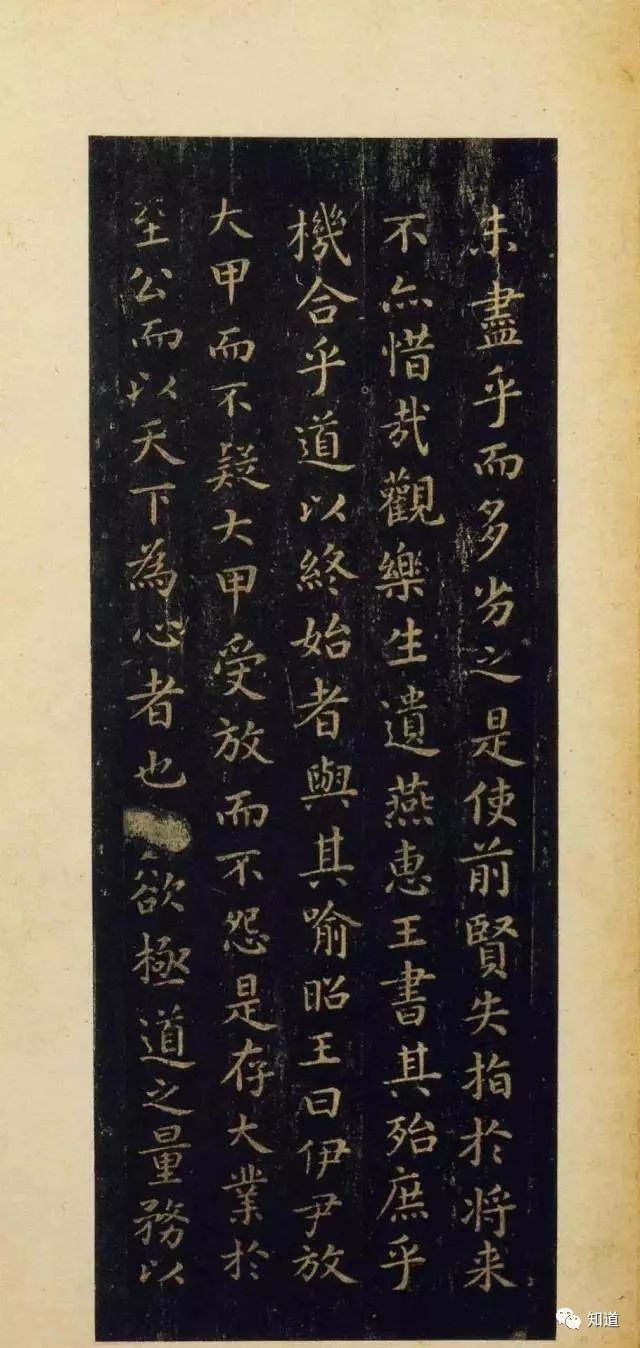 未盡乎而多劣之是使前賢失指於将来
不亦惜哉觀樂生遺燕惠王書其殆庶乎
機合乎道以終始者與其喻昭王曰伊尹放
大甲而不疑大甲受放而不怨是存大業於
至公而以天下為心者也欲極道之量務以
知道